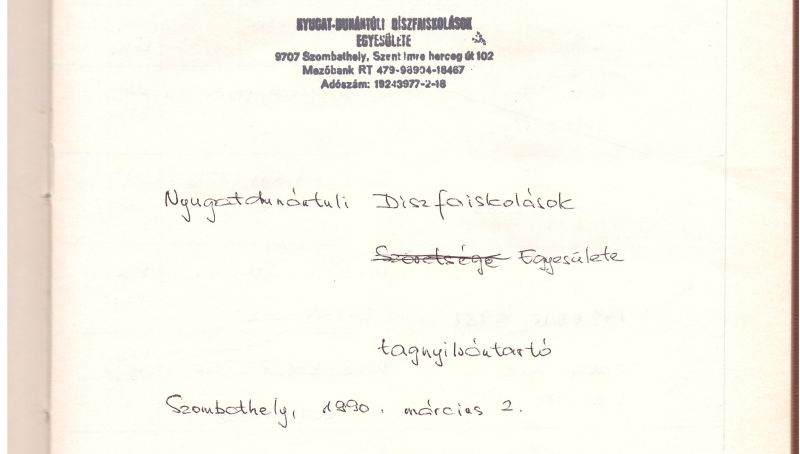 NYUGAT-DUNÁNTÚLI DÍSZFAISKOLÁSOK
EGYESÜLETE
9707 Szombathely, Szent Imre herceg út 102
Mezőbank RT 479-98904-18467
Adószám: 19243977-2-18
Nyugatdunántuli Diszfaiskolások
Szövetsége Egyesülete
tagnyilvántartó
Szombathely, 1990. március 2.